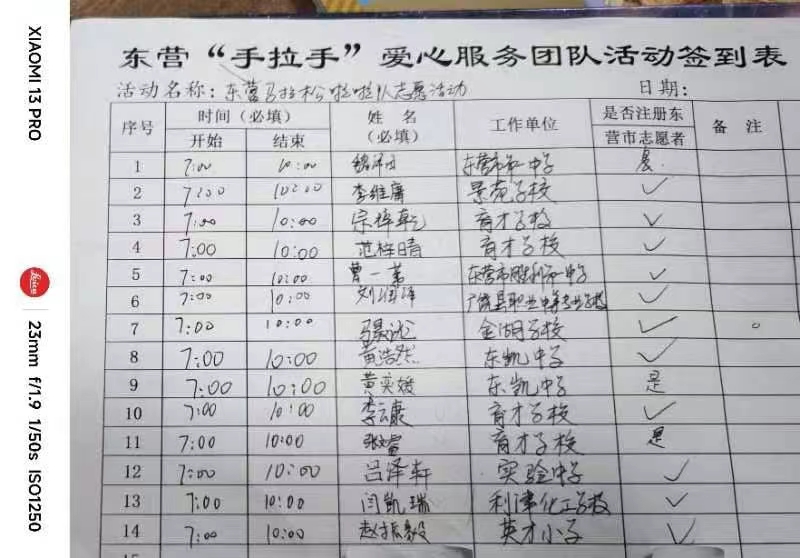 XIAOMI 13 PRO
Leica
23mm f/1.9 1/50s ISO1250
东营“手拉手”爱心服务团队活动签到表
活动名称：东营马拉松啦啦队志愿活动 日期：
序号 时间（必填） 姓名（必填） 工作单位 是否注册东营市志愿者 备注
开始 结束
1 7:00 10:00 东营市和一中学 是
2 7:00 10:00 李维庸 景苑学校 ✓
3 7:00 10:00 宗梓乾 育才学校 ✓
4 7:00 10:00 范梓晴 育才学校 ✓
5 7:00 10:00 曹一 东营市胜利第一中学 ✓
6 7:00 10:00 刘润泽 广饶县职业中等专业学校 ✓
7 7:00 10:00 金湖学校 ✓
8 7:00 10:00 黄浩然 东凯中学 ✓
9 7:00 10:00 黄奕媛 东凯中学 是
10 7:00 10:00 李云康 育才学校 ✓
11 7:00 10:00 育才学校 是
12 7:00 10:00 吕泽轩 实验中学 ✓
13 7:00 10:00 闫凯瑞 利津化工学校 ✓
14 7:00 10:00 赵振毅 英才小学 ✓